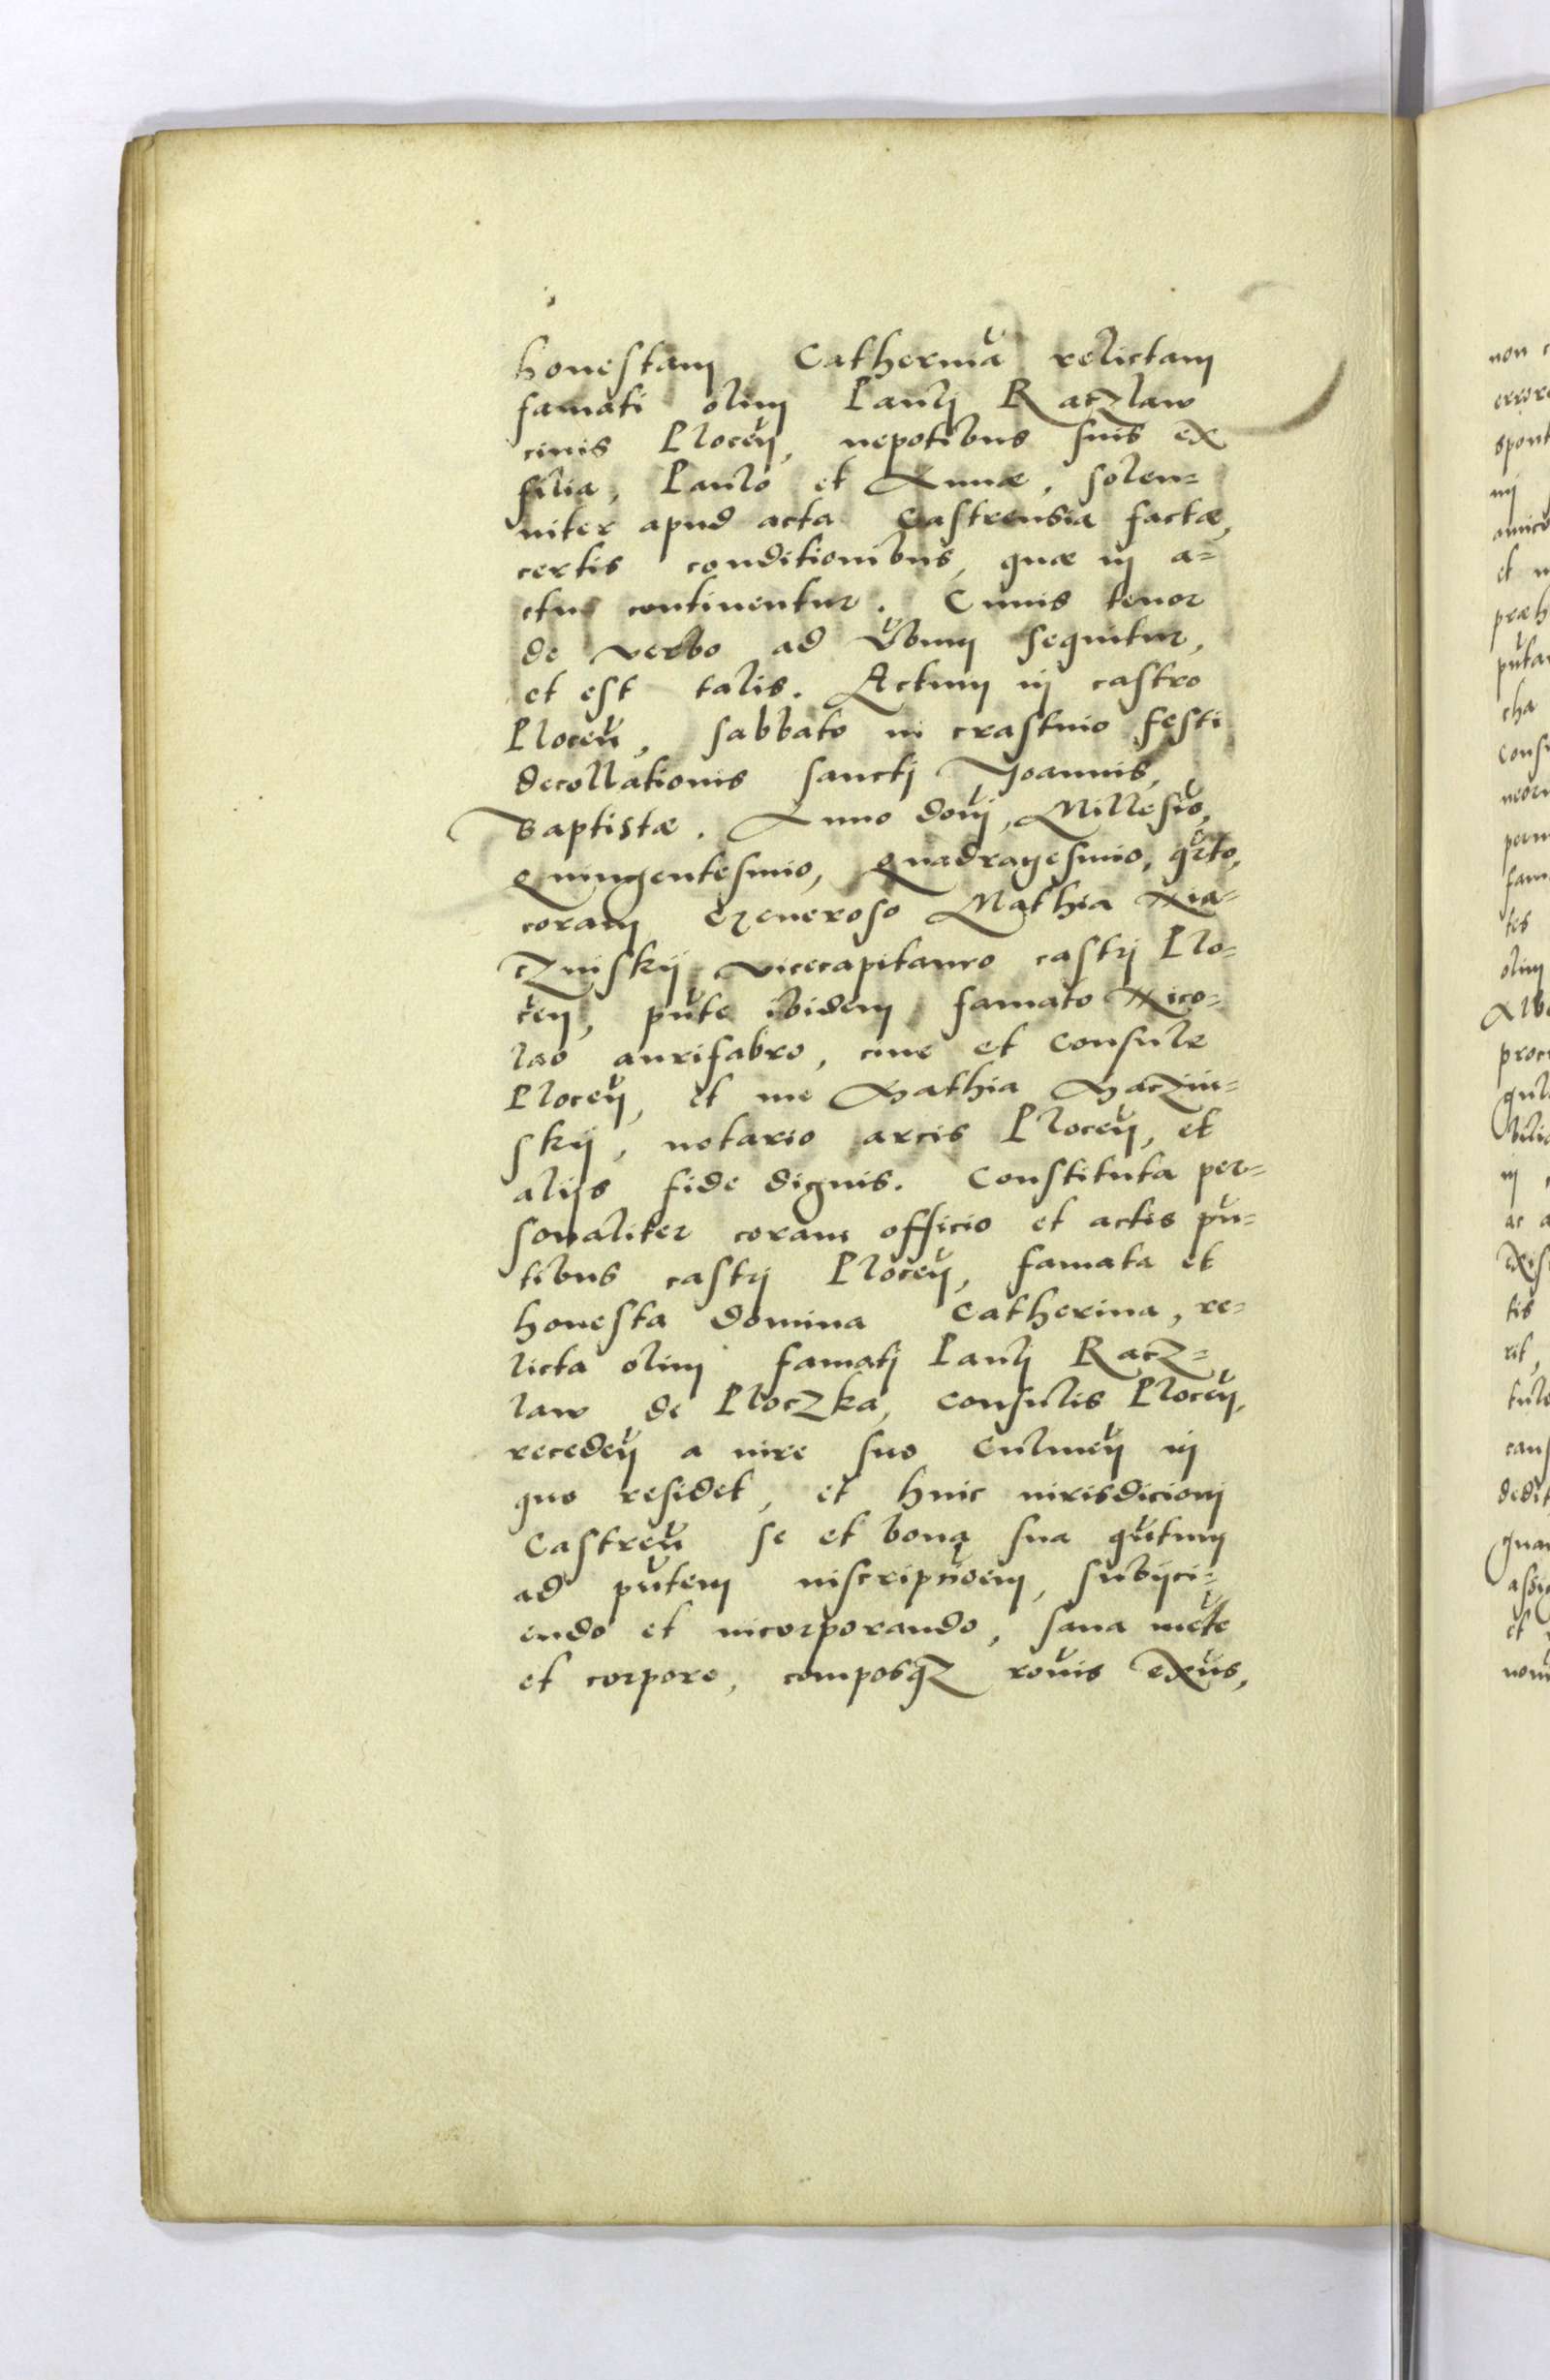 honestam Catherinã relictam
famati olim Pauli Raczlaw
ciuis Plocen̄, nepotibus suis ex
filia, Paulo et Annæ, solen=
niter apud acta Castrensia factæ,
certis conditionibus, quæ in a=
ctu continentur. Cuius tenor
de verbo ad v̄bum sequitur,
et est talis. Actum in castro
Plocen̄, sabbato in crastino festi
decollationis sancti Joannis,
Baptistæ. Anno don̄i, Millesi̅o,
Quingentesimo, Quadragesimo, qr̄to,
coram Generoso Mathia Nia=
czinskij vicecapitaneo castri Plo=
cen̄, pn̄te ibidem famato Nico=
lao aurifabro, ciue et Consule
Plocen̄, et me Mathia Maczin=
skij, notario arcis Plocen̄, et
alijs fide dignis. Constituta per=
sonaliter coram officio et actis pn̄=
tibus castri Plocen̄, famata et
honesta domina Catherina, re=
licta olim famati Pauli Racz=
law de Ploczka, Consulis Plocen̄,
receden̄ a iure suo Culmen̄ in
quo residet, et huic iurisdicioni
Castren̄ se et bona sua qn̄tum
ad pn̄tem inscripn̄oem, subijci=
endo et incorporando, sana mēte
et corpore, composq̃ ron̄is exn̄s,
non
spont
in
et
cha
tes
olim
proc
in
ac a
tis
rit,
et